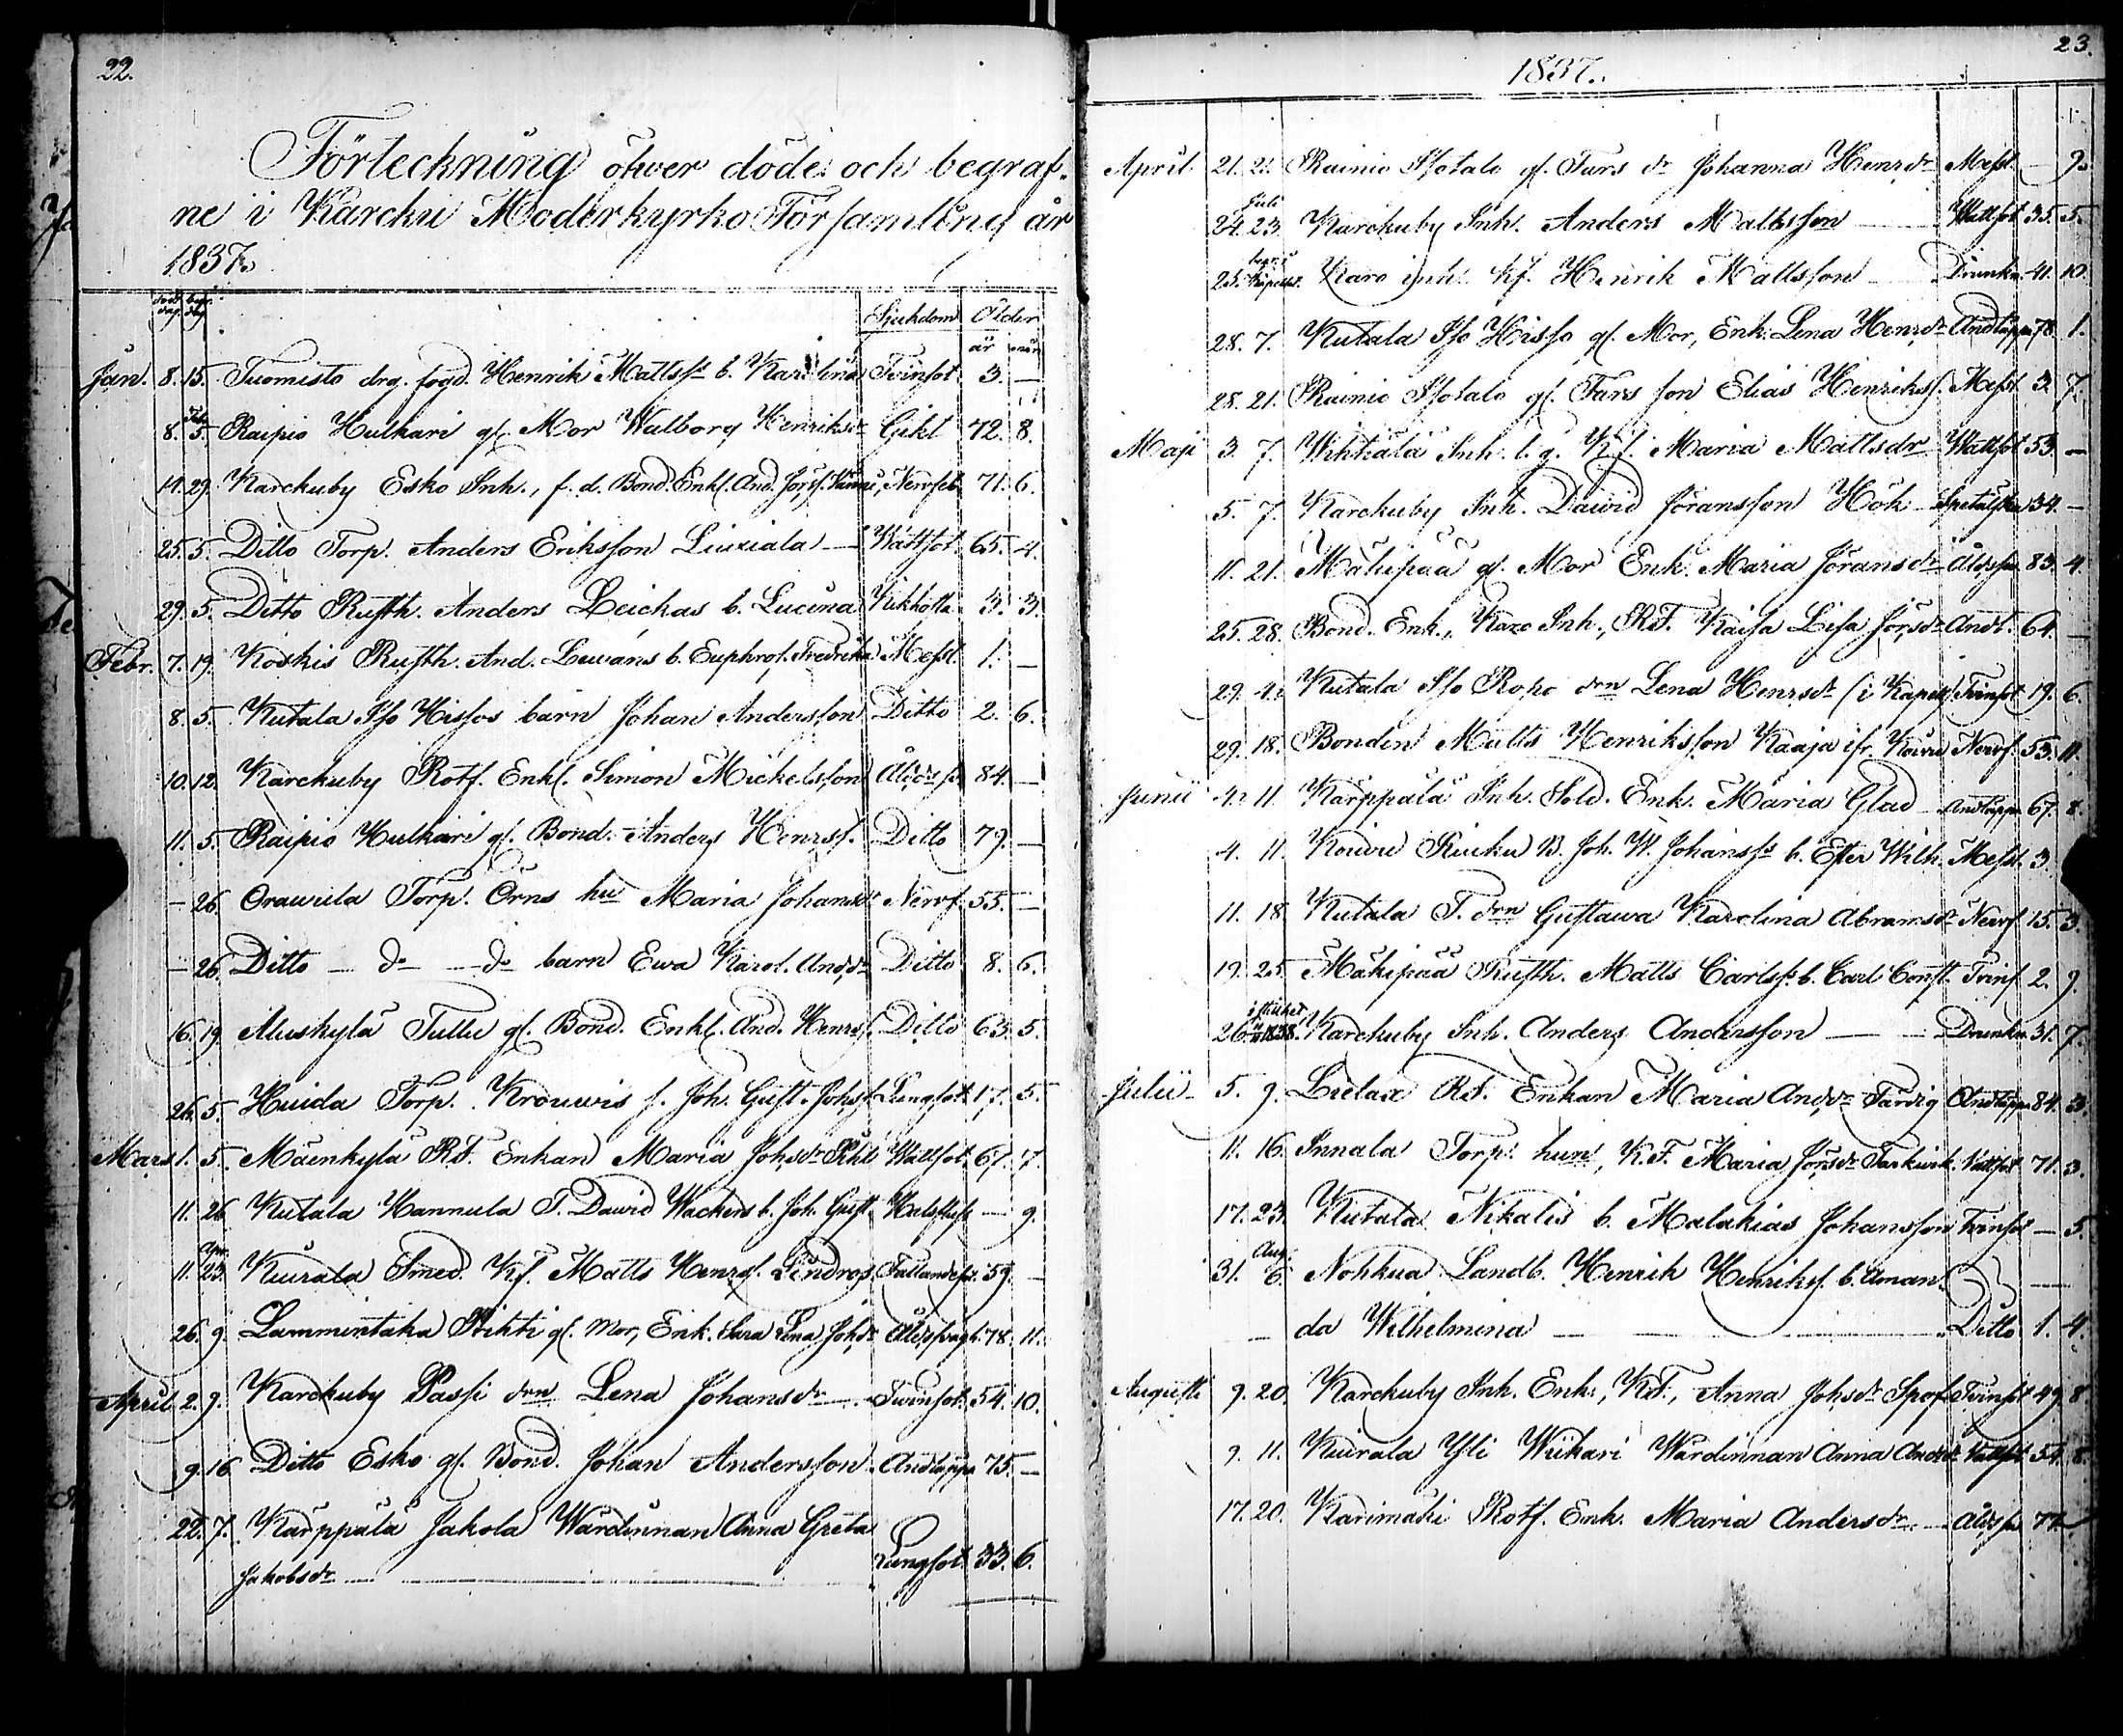 22.
Förteckning öfwer döde och begraf-
ne i Karcku Moderkyrko Församling år
1837.
död dag begr. dag Sjukdom Ålder
år mån
Jan. 8. 15. Tuomisto drg. fogd. Henrik Mattss b. Karolina Tvinsot 3. —
8. Feb. 5. Raipio Hulkari gl. Mor Walborg Henriksdr Gikt 72. 8.
14. 29. Karckuby Esko Inh., f. d. Bond. Enkl. And. Nervfeb. 71. 6.
25. 5. Ditto Torp. Anders Eriksson Liuxiala — Wattsot 65. 4.
29. 5. Ditto Rusth. Anders Leickas b. Lucina Kikhosta 3. 3.
Febr. 7. 19. Koskis Rusth. And. Lewans b. Euphros. Fredrika Messl. 1. —
8. 5. Kutala Iso Hissos barn Johan Andersson Ditto 2. 6.
10. 12. Karckuby Rotf. Enkl. Simon Mickelsson Åldrs sv. 84. —
11. 5. Raipio Hulkari gl. Bond. Anders Henrss. Ditto 79. —
— 26. Orawula Torp. Örns hu Maria Johansdr Nervf. 55. —
— 26. Ditto — do — do barn Ewa Karol. Andsdr Ditto 8. 6.
16. 19. Aluskylä Tullu gl. Bond. Enkl. And. Henrss. Ditto 63. 5.
26. 5. Huida Torp. Krouwis s. Joh. Gust. Johss. Lungsot 17. 5.
Mars 1. 5. Mäenkylä Rt. Enkan Maria Johsdr Wattsot 67. 7.
11. 26. Kutala Hannula T. Dawid Wackers b. Joh. Gust. Halsfluss — 9.
11. Apr. 23. Kuirala Smed. Kf. Matts Henrss. Lindros Fallandesj. 59. —
26. 9. Lammentaka Pihti gl. Mor, Enk. Sara Lena Johsdr Åldrsvagh. 78. 11.
April 2. 9. Karckuby Passi drn Lena Johansdr — Tvinsot 54. 10.
9. 16. Ditto Esko gl. Bond. Johan Andersson Andtäppa 75. —
22. 7. Kärppälä Jakola Wärdinnan Anna Greta
Jakobsdr — Lungsot 33. 6.
23.
1837.
April 21. 21. Rainio Isotalo gl. Fars dr Johanna Henrsdr Messl. — 9.
24. Juli 23. Karckuby Inh. Anders Mattsson — Wattsot 35. 5.
25. begr. i Kapellet. Karo inh. Kf. Henrik Mattsson — Drunkn. 41. 10.
28. 7. Kutala Iso Hisso gl. Mor, Enk. Lena Henrsdr Andtäppa 78. 1.
28. 21. Rainio Isotalo gl. Fars son Elias Henrikss. Messl. 3. 7.
Maji 3. 7. Wihtkälä Inh. l. g. Kf. Maria Mattsdr Wattsot 53. —
5. 7. Karckuby Inh. Dawid Göransson Hök — Spetälska 34. —
11. 21. Mäkipää gl. Mor Enk. Maria Göransdr Åldrsv. 83. 4.
25. 28. Bond. Enk., Karo Inh., Rt. Kaisa Lisa Jörsdr Andt. 64. —
29. 4. Kutala Iso Ropo drn Lena Henrsdr (i Kapell) Tvinsot 19. 6.
29. 18. Bonden Matts Henriksson Kaaja ifr. Kouru Nervf. 53. 11.
Junii 4. 11. Kärppälä Inh. Sold. Enk. Maria Glad — Andtäppa 67. 8.
4. 11. Kouru Riuku B. Joh. W. Johanss b. Ester Wilh. Messl. 3.
11. 18. Kutala T. drn Gustawa Karolina Abramsdr Nervf. 15. 3.
19. 25. Mäkipää Rusth. Matts Carlss. b. Carl Const. Tvins. 2. 9.
26. i stillhet 1838. Karckuby Inh. Anders Andersson — Drunkn. 31. 7.
Julii 5. 9. Lielax Rt. Enkan Maria Andsdr Färdig Andtäppa 84. 3.
11. 16. Innala Torp. hun, K.F. Maria Jörsdr Wattsot 71. 3.
17. 23. Kutala Nikalis b. Malakias Johansson Tvinsot — 5.
31. Aug. 6. Nohkua Landb. Henrik Henrikss. b. Aman-
— da Wilhelmina — Ditto 1. 4.
Augusti 9. 20. Karckuby Inh. Enk., Kf., Anna Johsdr Spof Tvinsot 49. 8.
9. 11. Kuirala Yli Wiikari Wärdinnan Anna Andsdr Wattsot 54. 8.
17. 20. Karimäki Rotf. Enk. Maria Andersdr — Åldrsv. 77. —